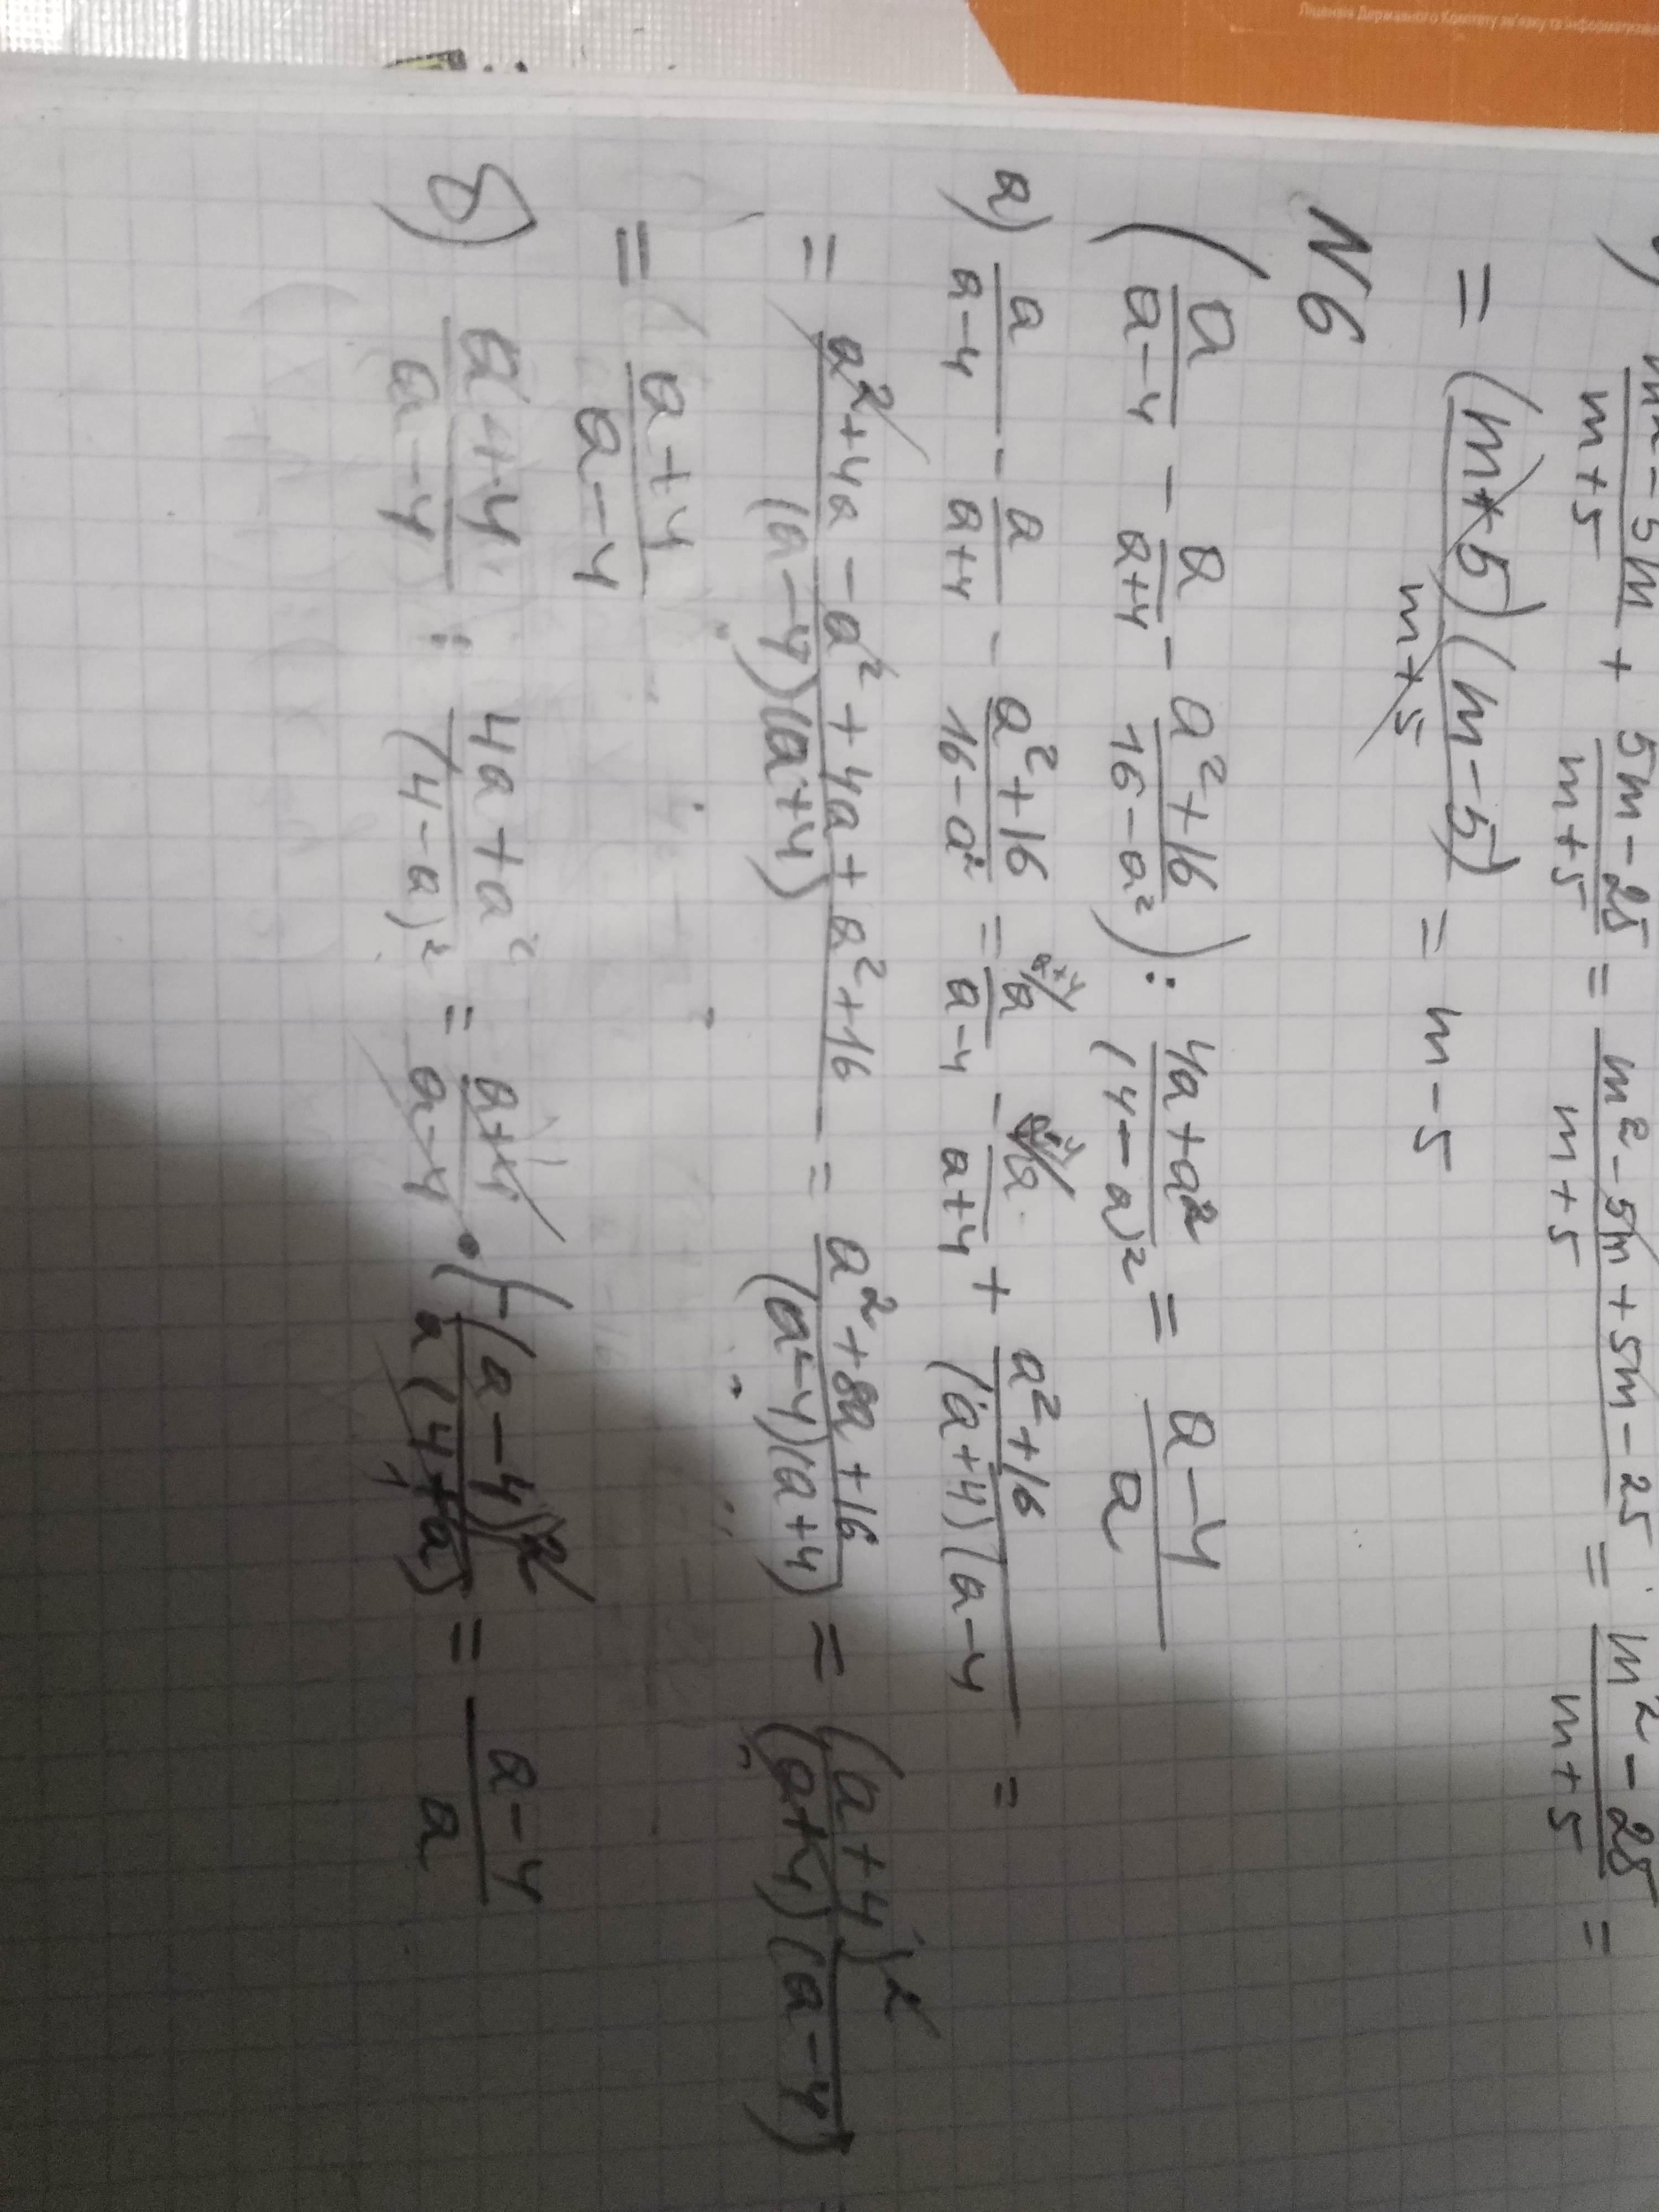 Ліцензія Державного Комітету зв'язку та інформатизації
) (m² - 5m)/(m+5) + (5m-25)/(m+5) = (m² - 5m + 5m - 25)/(m+5) = (m² - 25)/(m+5) =
= ((m+5)(m-5))/(m+5) = m-5
N6
(a/(a-4) - a/(a+4) - (a²+16)/(16-a²)) : (4a+a²)/(4-a)² = (a-4)/a
а) a/(a-4) - a/(a+4) - (a²+16)/(16-a²) = a/(a-4) - a/(a+4) + (a²+16)/((a+4)(a-4 =
= (a²+4a-a²+4a+a²+16)/((a-4)(a+4)) = (a²+8a+16)/((a-4)(a+4)) = (a+4)²/((a+4)(a-4)) =
= (a+4)/(a-4)
б) (a+4)/(a-4) : (4a+a²)/(4-a)² = (a+4)/(a-4) • (-(a-4))²/(a(4+a)) = (a-4)/a